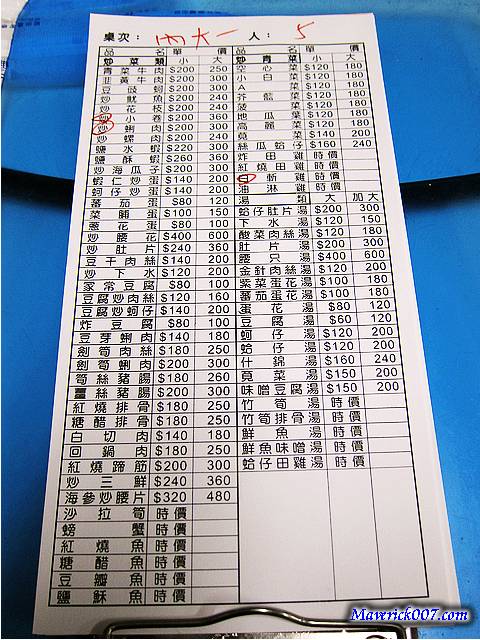 桌次： 內大一 人： 5
品名 單價 品名 單價
炒菜類 小 大 炒青菜 小 大
青菜牛肉 $200 250 空心菜 $120 180
韭黃牛肉 $200 300 小白菜 $120 180
豆豉蚵 $200 300 A菜 $120 180
炒魷魚 $200 240 芥藍菜 $120 180
炒花枝 $200 240 菠菜 $120 180
炒小卷 $200 360 地瓜葉 $120 180
炒蜊肉 $200 300 高麗菜 $120 180
炒螺肉 $200 240 莧菜 $120 180
鹽水蝦 $220 300 絲瓜蛤仔 $160 240
鹽酥蝦 $260 360 炸田雞 時價
炒海瓜子 $200 300 紅燒田雞 時價
蝦仁炒蛋 $140 200 白斬雞 時價
蚵仔炒蛋 $140 200 油淋雞 時價
蕃茄蛋 $80 120 湯類 大 加大
菜脯蛋 $100 150 蛤仔肚片湯 $200 300
蔥花蛋 $80 100 下水湯 $120 150
炒腰花 $400 600 酸菜肉絲湯 $120 180
炒肚片 $240 360 肚片湯 $200 300
豆干肉絲 $140 200 腰只湯 $400 600
炒下水 $120 200 金針肉絲湯 $120 200
家常豆腐 $80 100 紫菜蛋花湯 $100 180
豆腐炒肉絲 $120 160 蕃茄蛋花湯 $100 180
豆腐炒蚵仔 $140 200 蛋花湯 $80 120
炸豆腐 $80 100 豆腐湯 $60 120
豆芽蜊肉 $140 180 蚵仔湯 $120 200
劍筍肉絲 $180 250 蛤仔湯 $120 200
劍筍蜊肉 $200 300 什錦湯 $160 240
筍絲豬腸 $180 260 莧菜湯 $150 200
薑絲豬腸 $200 300 味噌豆腐湯 $150 200
紅燒排骨 $180 250 竹筍湯 時價
糖醋排骨 $180 250 竹筍排骨湯 時價
白切肉 $140 180 鮮魚湯 時價
回鍋肉 $180 250 鮮魚味噌湯 時價
紅燒蹄筋 $200 300 蛤仔田雞湯 時價
炒三鮮 $240 360
海參炒腰片 $320 480
沙拉筍 時價
螃蟹 時價
紅燒魚 時價
糖醋魚 時價
豆瓣魚 時價
鹽酥魚 時價
Maverick007.com